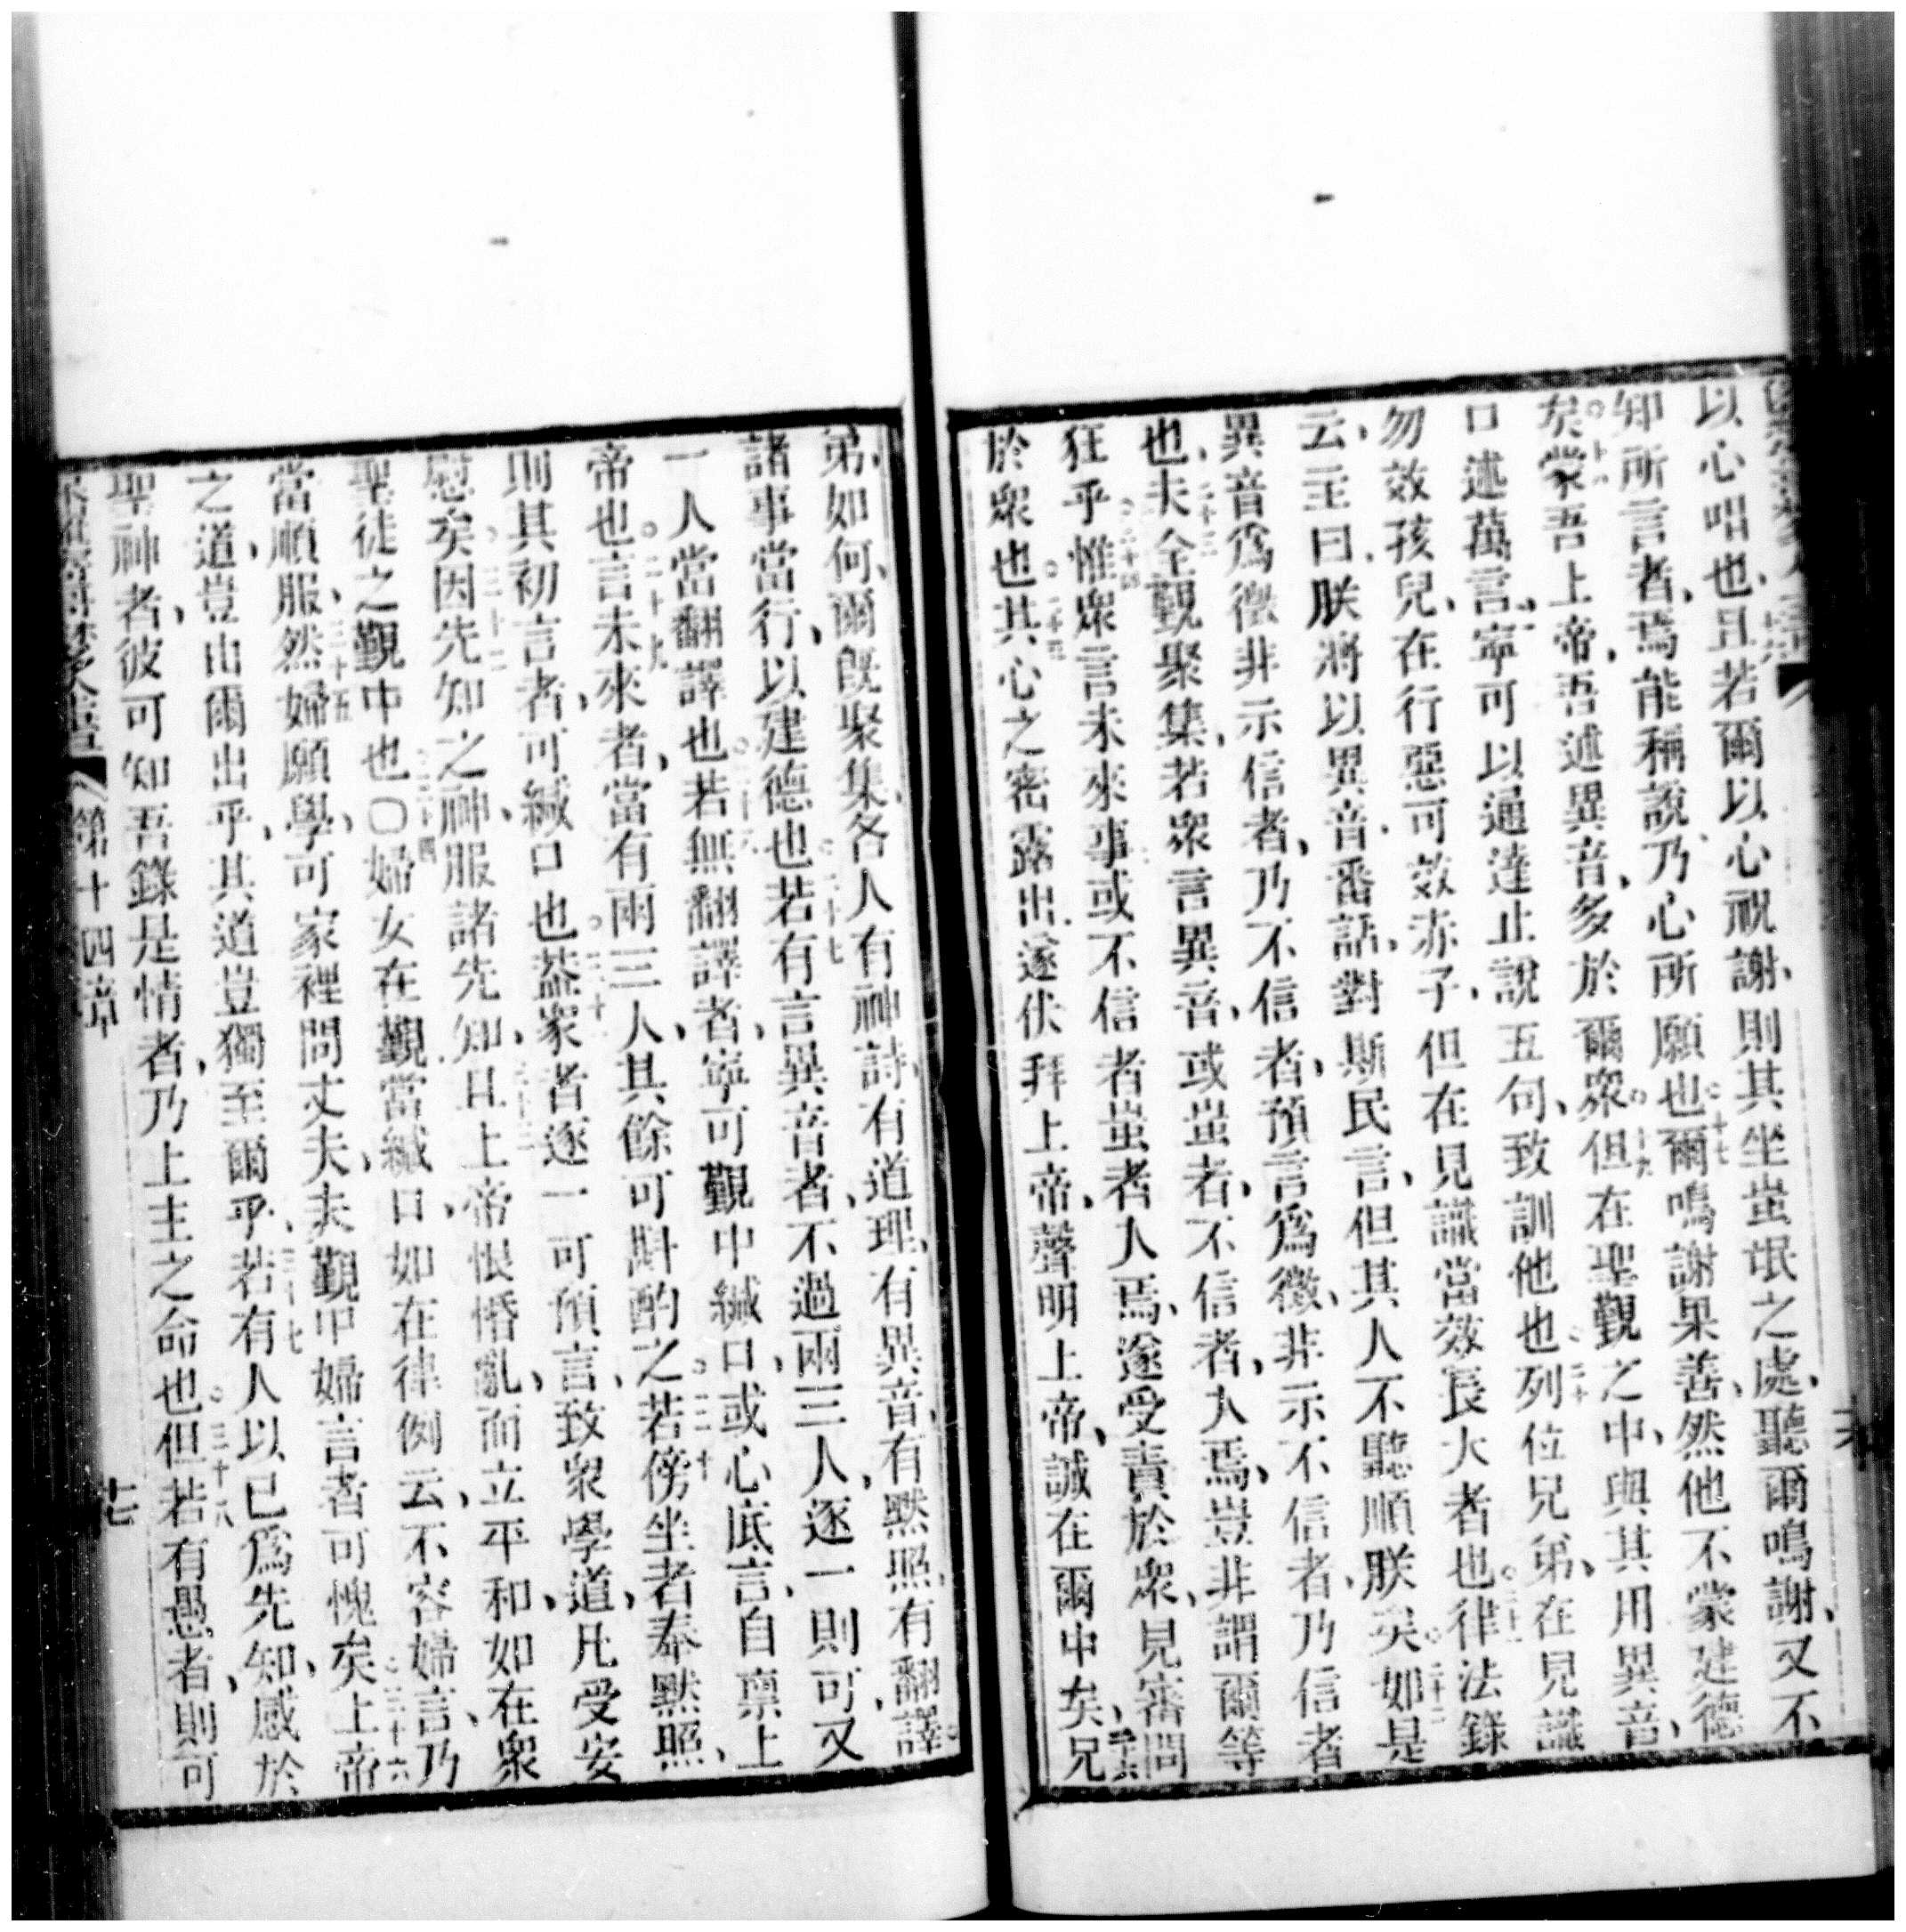 以心唱也、且若爾以心祝謝、則其坐蚩氓之處、聽爾鳴謝、又不
知所言者、焉能稱說、乃心所願也○十七爾鳴謝果善、然他不蒙建德
矣○十八蒙吾上帝、吾述異音、多於爾衆○十九但在聖覲之中、與其用異音、
口述萬言、寧可以通達止說五句、致訓他也○二十列位兄弟、在見識
勿效孩兒、在行惡可效赤子、但在見識當效長大者也○二十一律法錄
云、主曰、朕將以異音番話、對斯民言、但其人不聽順朕矣○二十二如是
異音爲徵、非示信者、乃不信者、預言爲徵、非示不信者、乃信者
也、○二十三夫全覲聚集、若衆言異音、或蚩者、不信者、入焉、豈非謂爾等
狂乎○二十四惟衆言未來事、或不信者蚩者入焉、遂受責於衆、見審問
於衆也○二十五其心之密露出、遂伏拜上帝、聲明上帝、誠在爾中矣、○二十六兄
弟、如何、爾旣聚集、各人有神詩、有道理、有異音、有默照、有翻譯、
諸事當行、以建德也○二十七若有言異音者、不過兩三人、逐一則可、又
一人當翻譯也○二十八若無翻譯者、寧可覲中緘口、或心底言、自禀上
帝也○二十九言未來者、當有兩三人、其餘可斟酌之○三十若傍坐者奉默照、
則其初言者、可緘口也○三十一葢衆者逐一可預言、致衆學道、凡受安
慰矣○三十二因先知之神、服諸先知、○三十三且上帝恨惛亂、而立平和、如在衆
聖徒之覲中也○三十四〇婦女在覲當緘口、如在律例云、不容婦言、乃
當順服、○三十五然婦願學、可家裡問丈夫、夫覲中婦言者可愧矣○三十六上帝
之道、豈由爾出乎、其道豈獨至爾乎、○三十七若有人以已爲先知、感於
聖神者、彼可知吾錄是情者、乃上主之命也○三十八但若有愚者、則可
第十四章 十七